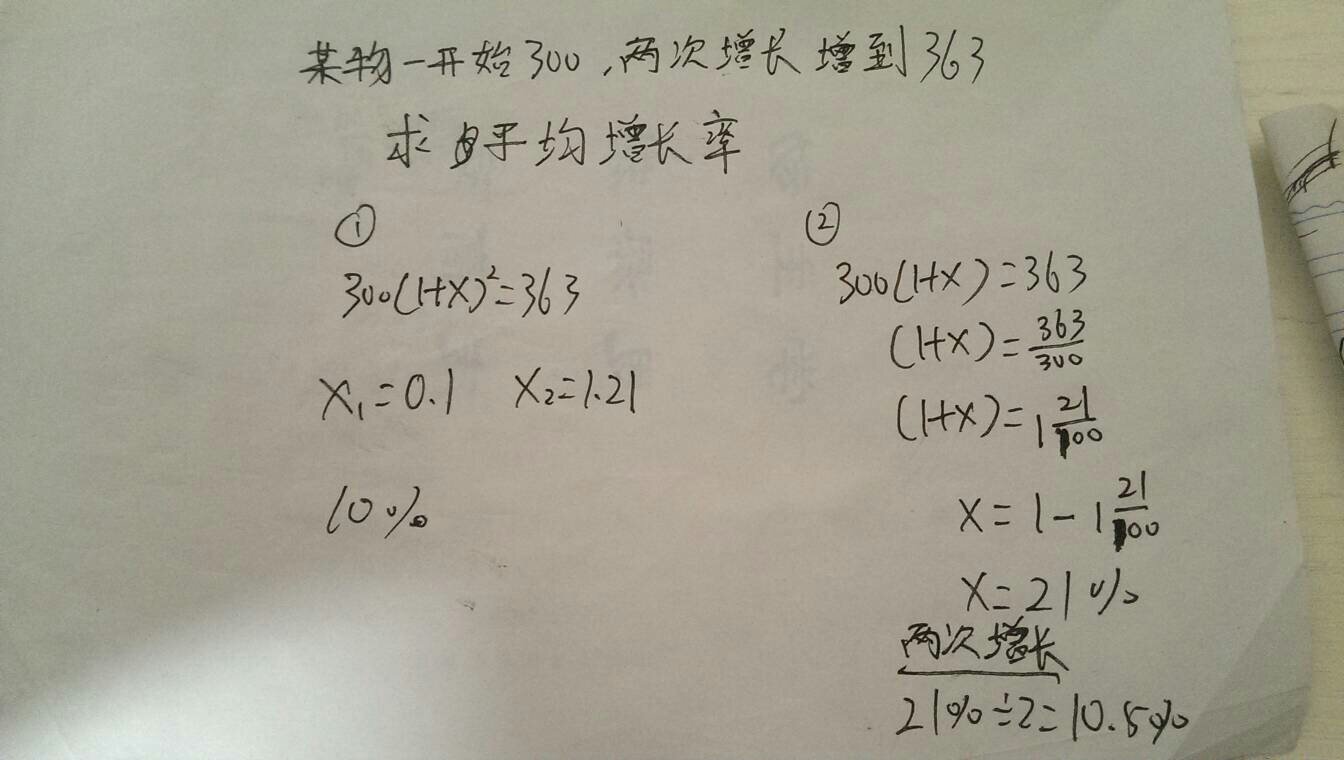 某物一开始300，两次增长增到363
求平均增长率
①
300(1+x)²=363
x₁=0.1 x₂=1.21
10%
②
300(1+x)=363
(1+x)=363/300
(1+x)=1 21/100
x=1-1 21/100
x=21%
两次增长
21%÷2=10.5%